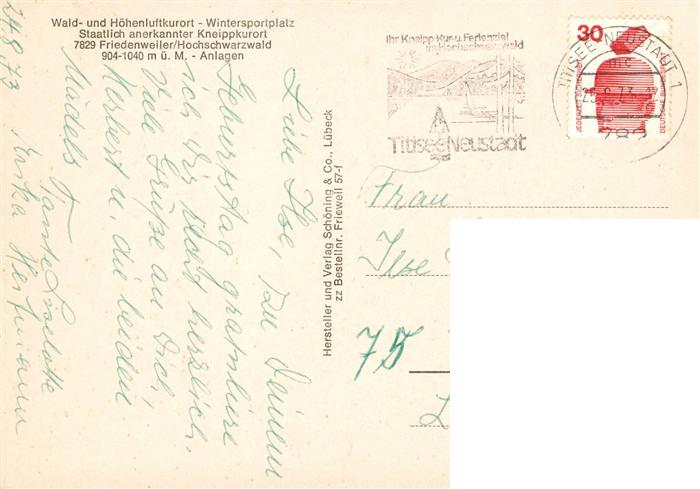 Wald- und Höhenluftkurort - Wintersportplatz
Staatlich anerkannter Kneippkurort
7829 Friedenweiler/Hochschwarzwald
904-1040 m ü. M. - Anlagen
24.8.73
Liebe Ilse, zu Deinem
Geburtstag gratuliere
ich Dir recht herzlich.
Viele Grüße an Dich,
Herbert u. die beiden
Mädels Tante Liselotte
Erika
Hersteller und Verlag Schöning & Co., Lübeck
zz Bestellnr. Frieweil 57-f
Ihr Kneipp-Kur-u. Ferienziel
im Hochschwarzwald
Titisee Neustadt
TITISEE-NEUSTADT 1
30
JEDERZEIT SICHERHEIT
DEUTSCHE BUNDESPOST
Frau
Ilse
75